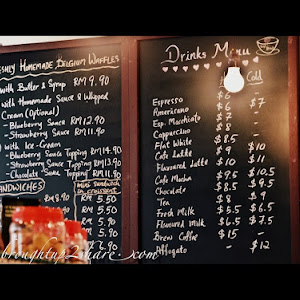 Freshly Homemade Belgium Waffles
with Butter & Syrup RM 9.90
with Homemade Sauce & Whipped
Cream (Optional)
- Blueberry Sauce RM 12.90
- Strawberry Sauce RM 11.90
with Ice-Cream
- Blueberry Sauce Topping RM 14.90
- Strawberry Sauce Topping RM 13.90
- Chocolate Sauce Topping RM 11.90
SANDWICHES
mini sandwich
RM 8.90 RM 5.50
RM 5.50
RM 5.50
RM 5.90
Drinks Menu
Hot Cold
Espresso $6
Americano $6 $7
Esp. Macchiato $7 -
Cappuccino $8 -
Flat White $8.5 -
Cafe Latte $9 $10
Flavoured Latte $10 $11
Cafe Mocha $9.5 $10.5
Chocolate $8.5 $9.5
Tea $8 $9
Fresh Milk $5.5 $6.5
Flavoured Milk $6.5 $7.5
Brew Coffee $15 -
Affogato - $12
broughtup2share.com